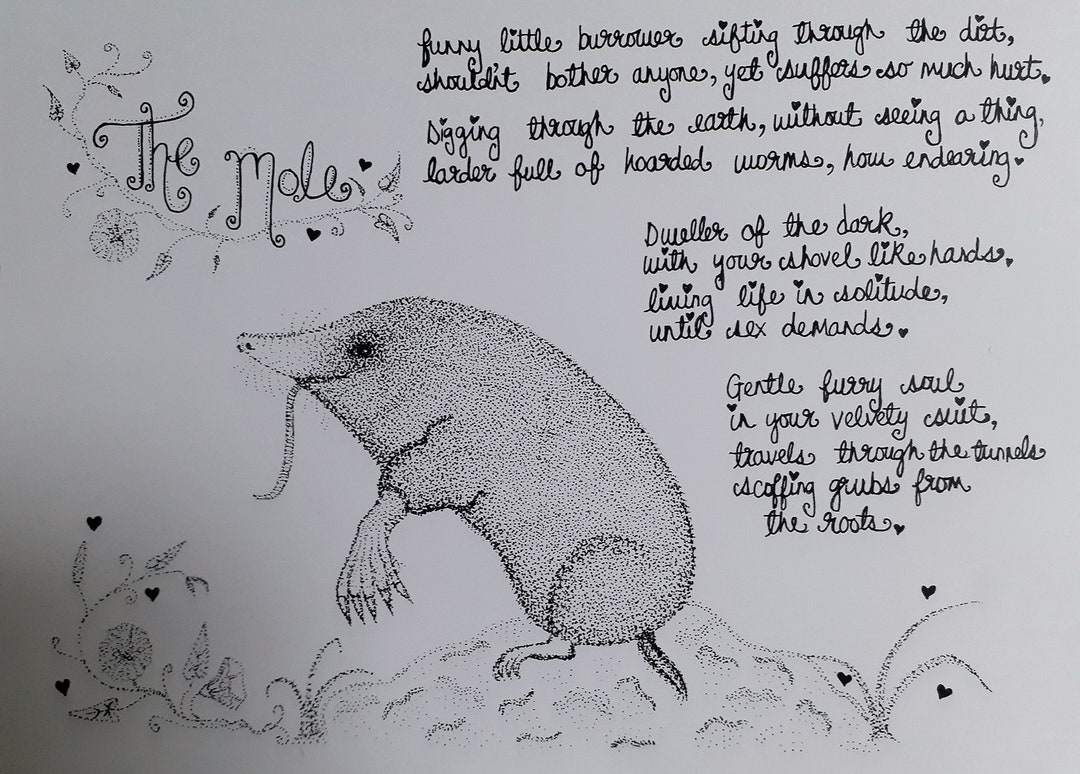 The Mole
funny little burrower sifting through the dirt,
shouldn't bother anyone, yet suffers so much hurt.
Digging through the earth, without seeing a thing,
larder full of hoarded worms, how endearing.
Dweller of the dark,
with your shovel like hands.
living life in solitude,
until sex demands.
Gentle furry soul
in your velvety suit,
travels through the tunnels
scoffing grubs from
the roots.